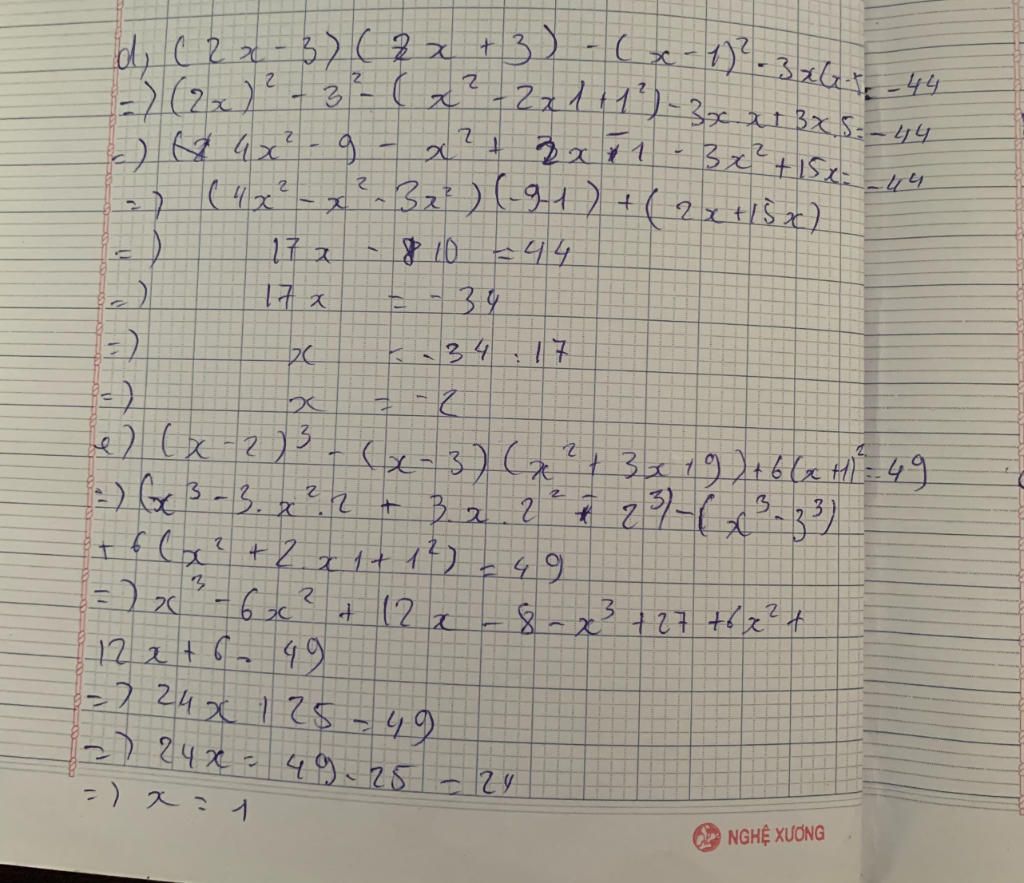 d, (2x - 3)(2x + 3) - (x - 1)² - 3x(x-5 = -44
=) (2x)² - 3² - (x² - 2x1 + 1²) - 3x x + 3x.5 = -44
=) 4x² - 9 - x² + 2x - 1 - 3x² + 15x = -44
=) (4x² - x² - 3x²)(-9-1) + (2x + 15x)
=) 17x - 10 = 44
=) 17x = -34
=) x = -34 : 17
=) x = -2
e) (x - 2)³ - (x - 3)(x² + 3x + 9) + 6(x+1)² = 49
=) (x³ - 3.x².2 + 3.x.2² - 2³) - (x³ - 3³)
+ 6(x² + 2.x1 + 1²) = 49
=) x³ - 6x² + 12x - 8 - x³ + 27 + 6x² +
12x + 6 = 49
=) 24x + 25 = 49
=) 24x = 49 - 25 = 24
=) x = 1
NGHỆ XƯƠNG